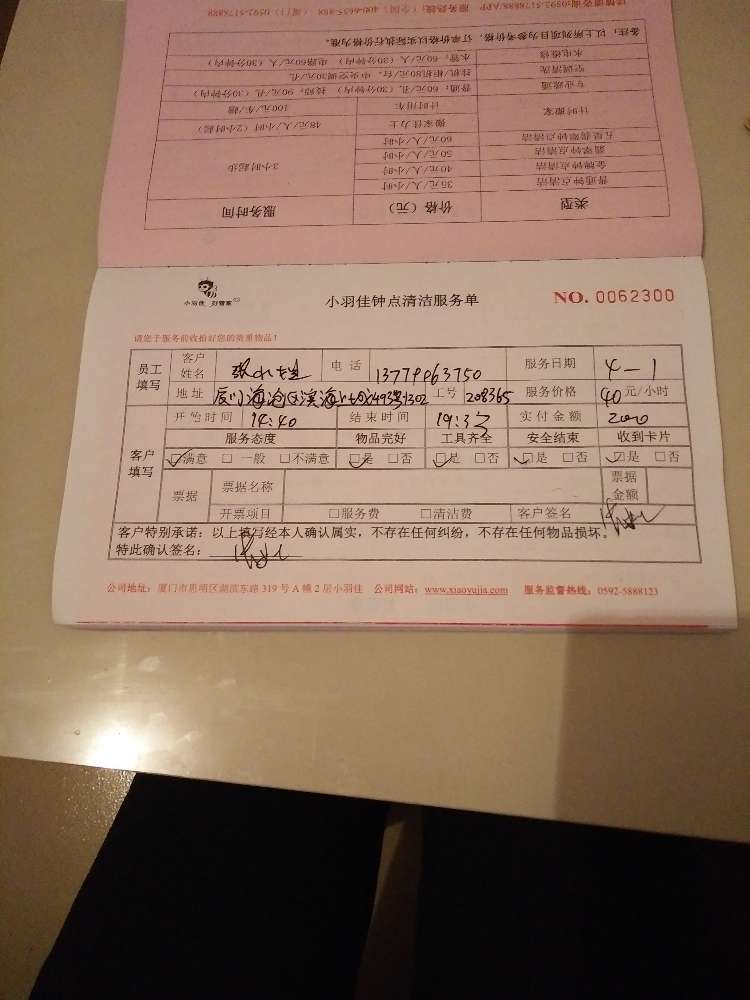 详情咨询:0592-5178888/APP 服务热线：400-6655-808（全国） 0592-5178888（厦门）
备注：以上所列项目为参考价格，订单价格以实际执行价格为准。
类型 价格（元） 服务时间
普通钟点清洁 35元/人/小时 3小时起步
金牌钟点清洁 40元/人/小时
翡翠钟点清洁 50元/人/小时
五星翡翠钟点清洁 60元/人/小时
计时搬家 搬家佳力士 48元/人/小时（2小时起）
计时用车 100元/车/趟
专业疏通 普通：60元/孔（30分钟内） 技师：90元/孔（30分钟内）
空调清洗 挂机柜机80元/台，中央空调30元/孔
水电维修 水管：60元/人/（30分钟内） 电路60元/人/（30分钟内）
小羽佳 好管家
小羽佳钟点清洁服务单
NO. 0062300
请您于服务前收拾好您的贵重物品！
员工填写 客户姓名 电话 服务日期 4-1
地址 厦门海沧区滨海 1302 工号 208365 服务价格 40 元/小时
开始时间 14:40 结束时间 实付金额
客户填写 服务态度 物品完好 工具齐全 安全结束 收到卡片
☑满意 □一般 □不满意 ☑是 □否 ☑是 □否 ☑是 □否 ☑是 □否
票据 票据名称 票据金额
开票项目 □服务费 □清洁费 客户签名
客户特别承诺：以上填写经本人确认属实，不存在任何纠纷，不存在任何物品损坏。
特此确认签名：
公司地址：厦门市思明区湖滨东路 319 号 A 幢 2 层小羽佳 公司网站：www.xiaoyujia.com 服务监督热线：0592-5888123